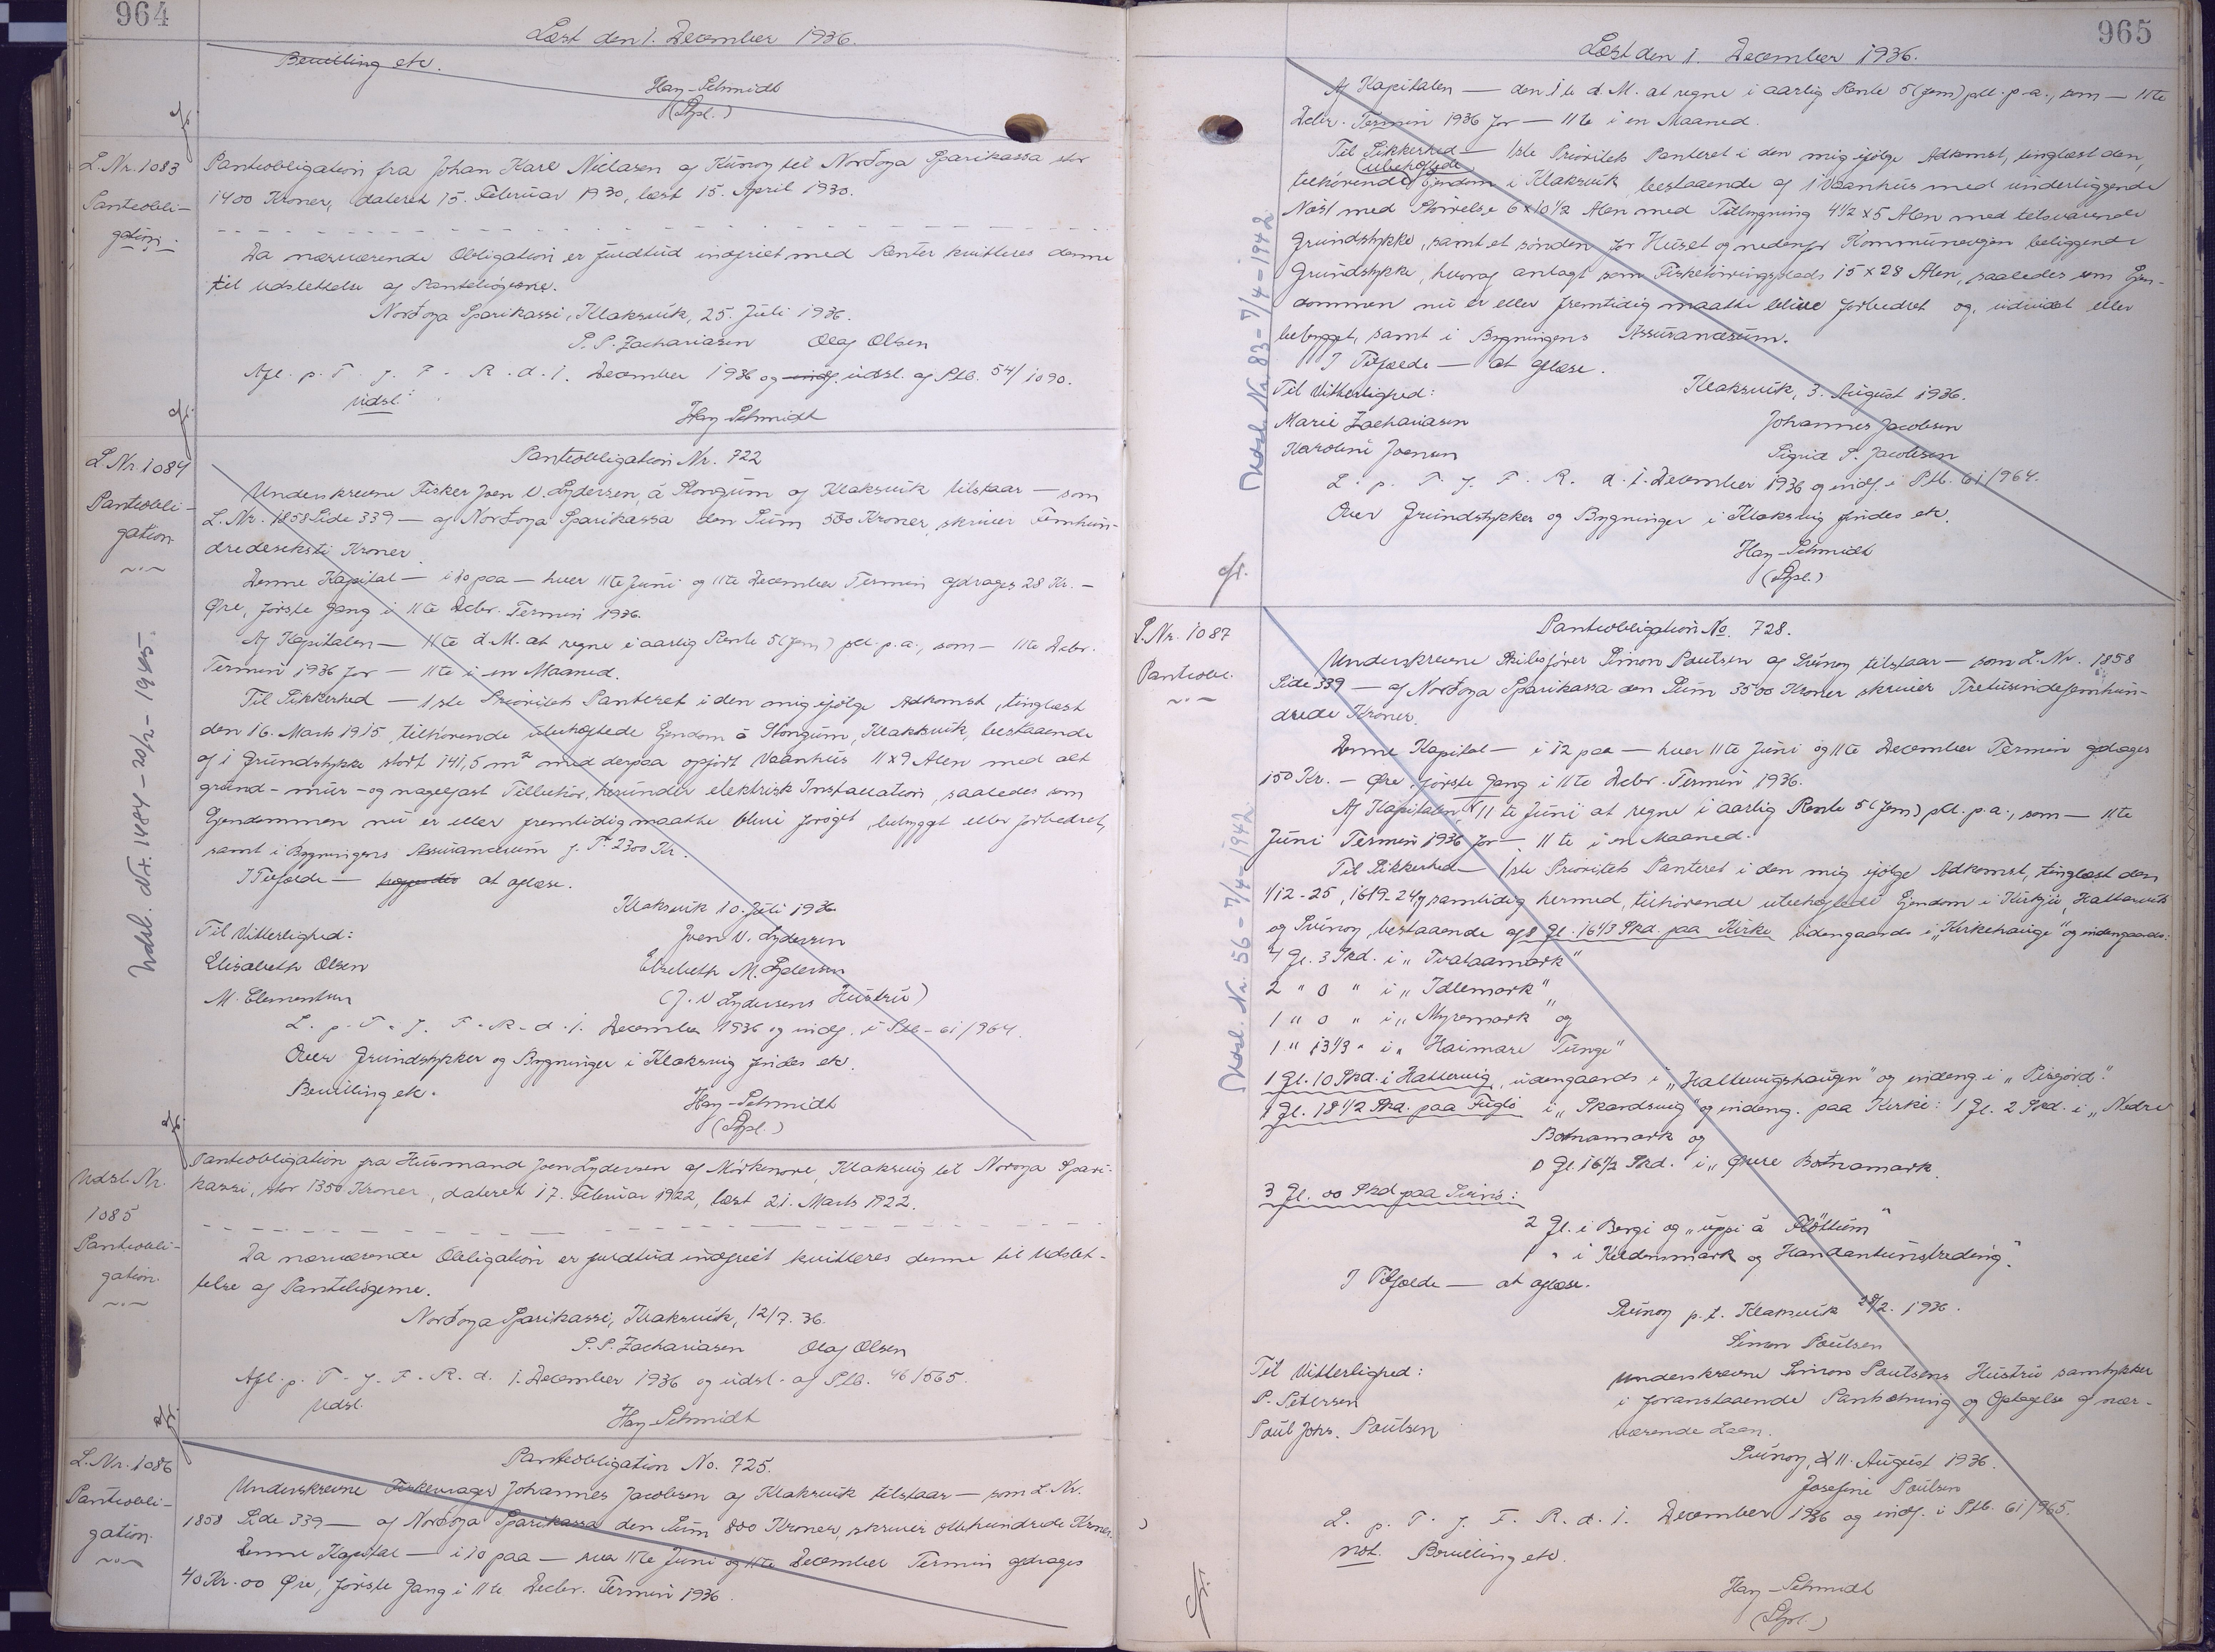 964
Læst den 1. December 1936.
Bevilling etc.
Hay-Schmidt
(Spl.)
L.Nr. 1083
Panteobli-
gation.
Panteobligation fra Johan Karl Nielasen af Kunoy til Norðoya Sparikassa stor
1400 Kroner, dateret 15. Februar 1930, læst 15. April 1930.
Da nærværende Obligation er fuldtud indfriet med Renter kvitteres denne
til Udslettelse af Pantebøgerne.
Norðoya Sparikassi, Klaksvik, 25. Juli 1936.
P.P. Zachariasen Olaf Olsen
Afl. p. T. f. F. R. d. 1. December 1936 og indf. udsl. af Ptb. 54/1090.
Udsl.
Hay-Schmidt
L.Nr. 1084
Panteobli-
gation
Udsl. Nr. 1484 - 20/12 - 1945.
Panteobligation Nr. 722
Underskrevne Fisker Joen V. Lydersen, á Stongum af Klaksvik tilstaar — som
L. Nr. 1858 Side 339 — af Norðoya Sparikassa den Sum 560 Kroner, skriver Femhun-
dredeseksti Kroner.
Denne Kapital — i 10 paa — hver 11te Juni og 11te December Termin afdrages 28 Kr. —
Øre, første Gang i 11te Decbr. Termin 1936.
Af Kapitalen — 11te d.M. at regne i aarlig Rente 5 (fem) pCt. p.a., som — 11te Decbr.
Termin 1936 for — 11te i en Maaned.
Til Sikkerhed — 1ste Prioritets Panteret i den mig ifølge Adkomst, tinglæst
den 16. Marts 1915, tilhørende ubehæftede Ejendom á Stongum, Klaksvik, bestaaende
af 1 Grundstykke stort 141,5 m² med derpaa opført Vaanhus 11 x 9 Alen med alt
grund-mur-og nagelfast Tilbehør, herunder elektrisk Installation, saaledes som
Ejendommen nu er eller fremtidig maatte blive forøget, bebygget eller forbedret,
samt i Bygningens Assurancesum f. T. 2300 Kr.
I Tilfælde — at aflæse.
Klaksvik 10. Juli 1936.
Til Vitterlighed:
Joen V. Lydersen
Elisabeth Olsen
Elsebeth M. Lydersen
M. Clementsen
(J. V. Lydersens Hustru)
L. p. T. f. F. R. d. 1. December 1936 og indf. i Ptb. 61/964.
Over Grundstykker og Bygninger i Klaksvig findes etc.
Bevilling etc.
Hay-Schmidt
(Spl.)
Udsl. Nr.
1085
Panteobli-
gation.
Panteobligation fra Husmand Joen Lydersen af Mörkenore, Klaksvig til Norðoya Spari-
kassi, stor 1350 Kroner, dateret 17. Februar 1922, læst 21. Marts 1922.
Da nærværende Obligation er fuldtud indfriet kvitteres denne til Udslet-
telse af Pantebøgerne.
Norðoya Sparikassi, Klaksvik, 12/7. 36.
P.P. Zachariasen Olaf Olsen
Afl. p. T. f. F. R. d. 1. December 1936 og udsl. af Ptb. 46/565.
Udsl.
Hay-Schmidt
L. Nr. 1086
Panteobli-
gation.
Panteobligation No. 725.
Underskrevne Fiskevrager Johannes Jacobsen af Klaksvik tilstaar — som L. Nr.
1858 Side 339 — af Norðoya Sparikassa den Sum 800 Kroner, skriver ottehundrede Kroner.
Denne Kapital — i 10 paa — hver 11te Juni og 11te December Termin afdrages
40 Kr. 00 Øre, første Gang i 11te Decbr. Termin 1936.
965
Læst den 1. December 1936.
Af Kapitalen — den 1te d.M. at regne i aarlig Rente 5 (fem) pCt. p.a., som — 11te
Decbr. Termin 1936 for — 11te i en Maaned.
Til Sikkerhed — 1ste Prioritets Panteret i den mig ifølge Adkomst, tinglæst den,
ubehæftede
tilhørende Ejendom i Klaksvik, bestaaende af 1 Vaanhus med underliggende
Nøst med Størrelse 6 x 10 1/2 Alen med Tilbygning 4 1/2 x 5 Alen med tilsvarende
Grundstykke, samt et sønden for Huset og nedenfor Kommunevejen beliggende
Grundstykke, hvoraf anlagt som Fisketørringsplads 15 x 28 Alen, saaledes som Ejen-
dommen nu er eller fremtidig maatte blive forbedret og udvidet eller
bebygget, samt i Bygningens Assurancesum.
I Tilfælde — at aflæse.
Til Vitterlighed:
Klaksvik, 3. August 1936.
Marie Zachariasen
Johannes Jacobsen
Karoline Joensen
Sigrid P. Jacobsen
Udsl. Nr. 83 - 7/4 - 1942
L. p. T. f. F. R. d. 1. December 1936 og indf. i Ptb. 61/964.
Over Grundstykker og Bygninger i Klaksvig findes etc.
Hay-Schmidt
(Spl.)
L.Nr. 1087
Panteobl.
Udsl. Nr. 56 - 7/4 - 1942
Panteobligation No. 728.
Underskrevne Skibsfører Simon Poulsen af Svinoy tilstaar — som L. Nr. 1858
Side 339 — af Norðoya Sparikassa den Sum 3500 Kroner skriver Tretusindefemhun-
drede Kroner.
Denne Kapital — i 12 paa — hver 11te Juni og 11te December Termin afdrages
150 Kr. — Øre første Gang i 11te Decbr. Termin 1936.
Af Kapitalen 11te Juni at regne i aarlig Rente 5 (fem) pCt. p.a., som — 11te
Juni Termin 1936 for — 11te i en Maaned.
Til Sikkerhed — 1ste Prioritets Panteret i den mig ifølge Adkomst, tinglæst den
1/12-25, 16/9-24 og samtidig hermed, tilhørende ubehæftede Ejendom i Kirkju, Hattarvik
og Svinoy, bestaaende af 8 Gl. 16 1/3 Skd. paa Kirke udengaards i "Kirkehauge" og indengaards:
4 Gl. 3 Skd. i "Tvataamark"
2 " 0 " i "Idlemark"
1 " 0 " i "Myremark" og
1 " 13 1/3 " i "Haimare Tunge"
1 Gl. 10 Skd. i Hattervig, udengaards i "Hattervigshaugen" og indeng. i "Pisgørd".
1 Gl. 18 1/2 Skd. paa Fuglö i "Skardsvig" og indeng. paa Kirke: 1 Gl. 2 Skd. i "Nedre
Botnamark og
0 Gl. 16 1/2 Skd. i "Øvre Botnamark.
3 Gl. 00 Skd paa Svinö:
2 Gl. i Bergi og "uppi á Fløttum"
1 " i Keldummark og Handantunstreding."
I Tilfælde — at aflæse.
Svinoy p.t. Klaksvik 28/2. 1936.
Simon Poulsen
Til Vitterlighed:
Underskrevne Simon Poulsens Hustru samtykker
P. Petersen
i foranstaaende Pantsætning og Optagelse af nær-
Poul Johs. Poulsen
værende Laan.
Svinoy, 11. August 1936.
Josefine Poulsen
L. p. T. f. F. R. d. 1. December 1936 og indf. i Ptb. 61/965.
not. Bevilling etc.
Hay-Schmidt
(Spl.)